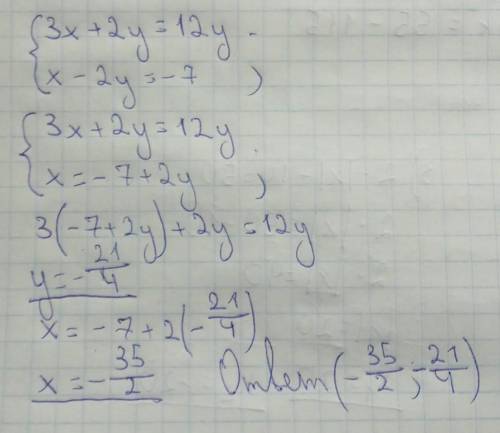 3x+2y=12y.
x-2y=-7 )
3x+2y=12y.
x=-7+2y )
3(-7+2y)+2y=12y
y=-21/4
x=-7+2(-21/4)
x=-35/2 Ответ(-35/2;-21/4)